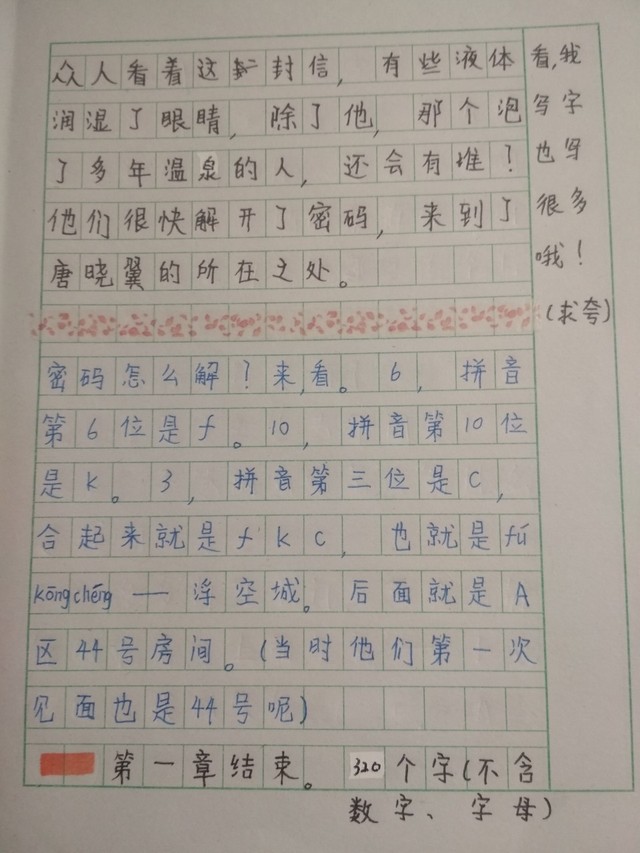 众人看着这封信，有些液体
润湿了眼睛，除了他，那个泡
了多年温泉的人，还会有谁？
他们很快解开了密码，来到了
唐晓翼的所在之处。
看,我
写字
也写
很多
哦！
(求夸)
密码怎么解？来,看。6，拼音
第6位是f。10，拼音第10位
是k。3，拼音第三位是c，
合起来就是fkc，也就是fú
kōngchéng——浮空城。后面就是A
区44号房间。(当时他们第一次
见面也是44号呢)
第一章结束。320个字(不含
数字、字母)